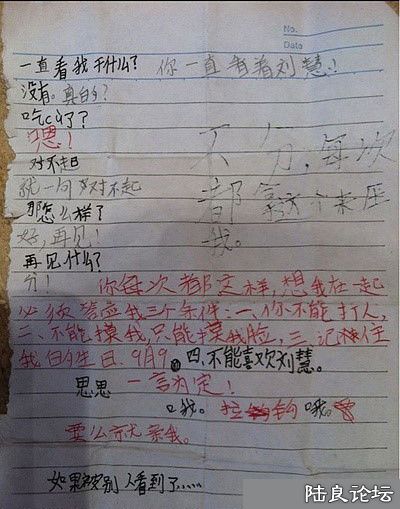 No.
Date
一直看我干什么? 你一直看着刘慧!
没有。真的?
吃cù了?
嗯!
对不起
就一句对不起
那怎么样?
好,再见!
再见什么?
分!
不分,每次
都拿这个来压
我。
你每次都这样,想我在一起
必须答应我三个条件:一、你不能打人,
二、不能摸我,只能摸我脸,三、记住
我的生日.9月9 四.不能喜欢刘慧。
思思 一言为定!
口我。拉钩 哦。
要么亲我。
如果被别人看到了.....
陆良论坛